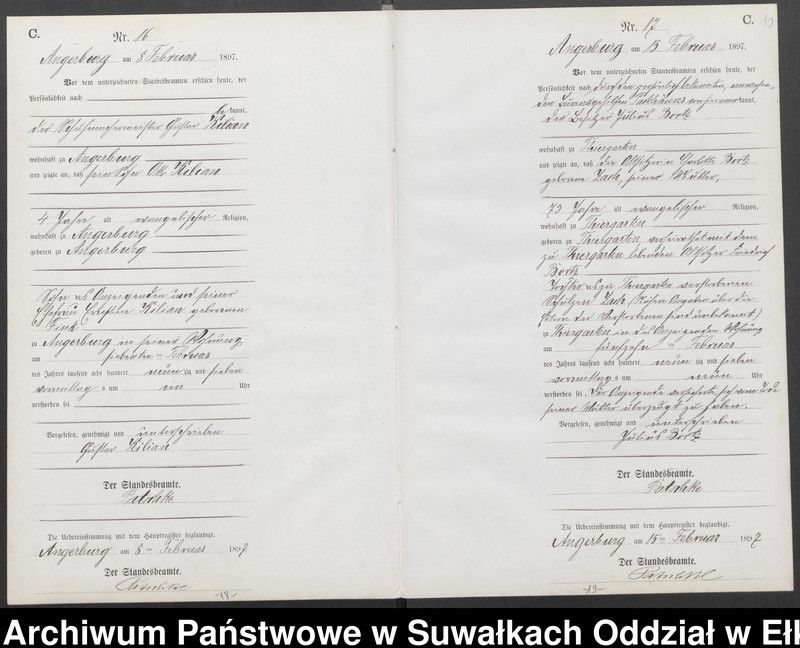 C.
Nr. 16
Angerburg am 8 Februar 1897.
Vor dem unterzeichneten Standesbeamten erschien heute, der
Persönlichkeit nach
be kannt,
der Schuhmachermeister Gustav Kilian
wohnhaft zu Angerburg
und zeigte an, daß sein Sohn Otto Kilian
4 Jahre alt evangelischer Religion,
wohnhaft zu Angerburg
geboren zu Angerburg
Sohn des Anzeigenden und seiner
Ehefrau Kilian geborenen
Fink
zu Angerburg in seiner Wohnung
am siebenten Februar
des Jahres tausend acht hundert neunzig und sieben
vormittags um ein Uhr
verstorben sei
Vorgelesen, genehmigt und unterschrieben
Gustav Kilian
Der Standesbeamte.
Patschke
Die Uebereinstimmung mit dem Hauptregister beglaubigt.
Angerburg am 8 ten Februar 1897
Der Standesbeamte.
Patschke
-18-
C. 10
Nr. 17
Angerburg am 15 Februar 1897.
Vor dem unterzeichneten Standesbeamten erschien heute, der
Persönlichkeit nach durch den persönlich bekannten, anwesen-
den kannt,
der Besitzer Julius Bortz
wohnhaft zu Thiergarten
und zeigte an, daß die Altsitzerin Charlotte Bortz
geborene Zack, seiner Mutter,
73 Jahre alt evangelischer Religion,
wohnhaft zu Thiergarten
geboren zu Thiergarten, verheirathet mit dem
zu Thiergarten lebenden Altsitzer Friedrich
Bortz
Tochter des zu Thiergarten verstorbenen
Zack (Nähere Angaben über die
Eltern der Verstorbenen sind unbekannt)
zu Thiergarten in des Anzeigenden Wohnung
am fünfzehn ten Februar
des Jahres tausend acht hundert neunzig und sieben
vormittags um neun Uhr
verstorben sei. Der Anzeigende versicherte, sich vom Tode
seiner Mutter überzeugt zu haben.
Vorgelesen, genehmigt und unterschrieben
Julius Bortz
Der Standesbeamte.
Patschke
Die Uebereinstimmung mit dem Hauptregister beglaubigt.
Angerburg am 15 ten Februar 1897
Der Standesbeamte.
Patschke
-19-
Archiwum Państwowe w Suwałkach Oddział w Ełk